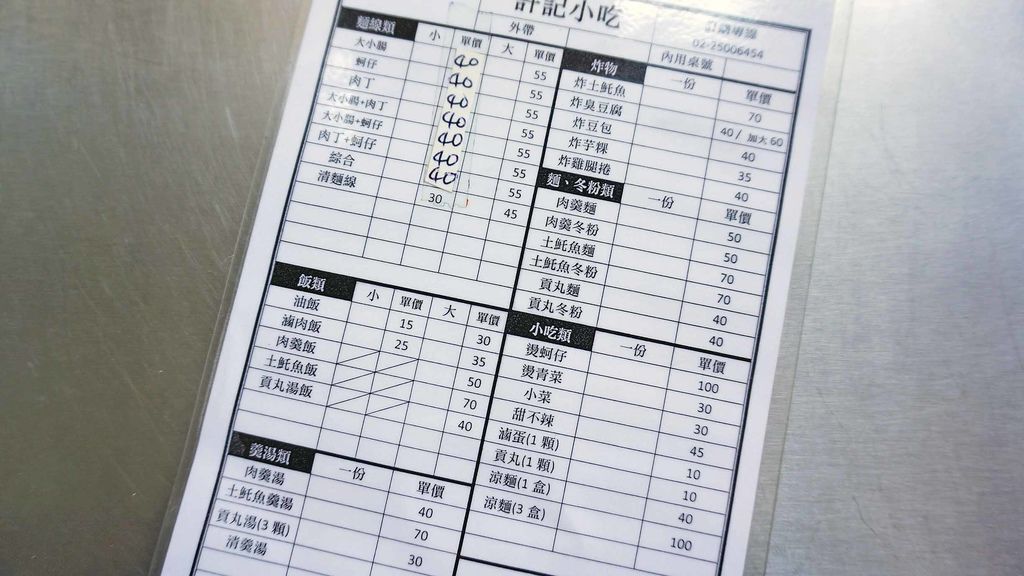 許記小吃
外帶
訂購專線
02-25006454
內用桌號
麵線類 小 單價 大 單價
大小腸 40 55
蚵仔 40 55
肉丁 40 55
大小腸+肉丁 40 55
大小腸+蚵仔 40 55
肉丁+蚵仔 40 55
綜合 40 55
清麵線 30 45
飯類 小 單價 大 單價
油飯 15 30
滷肉飯 25 35
肉羹飯 50
土魠魚飯 70
貢丸湯飯 40
羹湯類 一份 單價
肉羹湯 40
土魠魚羹湯 70
貢丸湯(3 顆) 30
清羹湯
炸物 一份 單價
炸土魠魚 70
炸臭豆腐 40 / 加大 60
炸豆包 40
炸芋粿 35
炸雞腿捲 40
麵、冬粉類 一份 單價
肉羹麵 50
肉羹冬粉 50
土魠魚麵 70
土魠魚冬粉 70
貢丸麵 40
貢丸冬粉 40
小吃類 一份 單價
燙蚵仔 100
燙青菜 30
小菜 30
甜不辣 45
滷蛋(1 顆) 10
貢丸(1 顆) 10
涼麵(1 盒) 40
涼麵(3 盒) 100